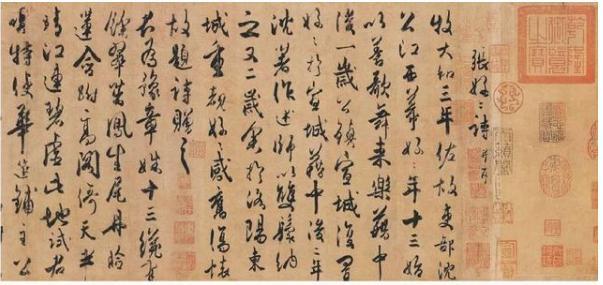 張好〻詩 并序
牧大和三年佐故吏部沈
公江西幕好〻年十三始
以善歌舞來樂籍中
後一歲公鎮宣城復置
好〻於宣城籍中後三年
沈著作述師以雙鬟納
之又二歲余於洛陽東
城重覩好〻感舊傷懷
故題詩贈之
君為豫章姝十三纔有
餘翠茁鳳生尾丹臉
蓮含跗高閣倚天半
晴江連碧虛此地試君
唱特使華筵鋪主公